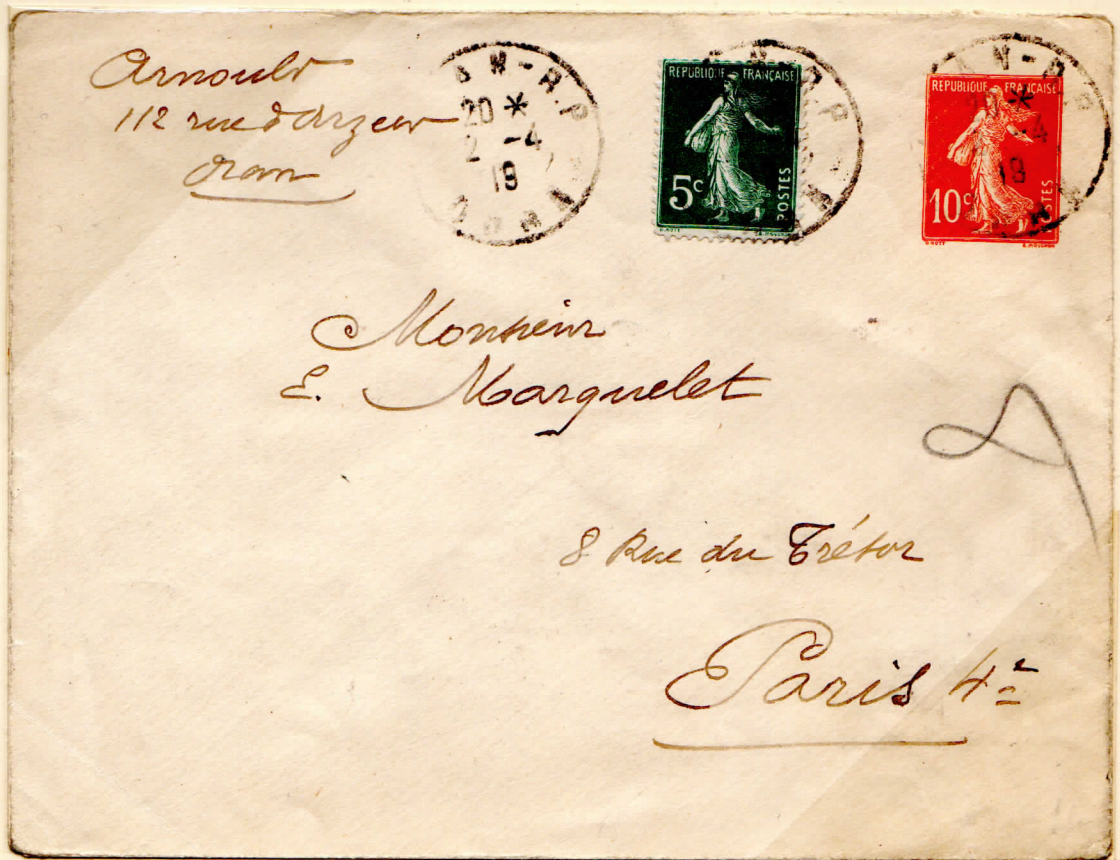 Arnould
112 rue d'Arzew
Oran
AN-R.P
20 *
2 -4
19
ORAN
REPUBLIQUE FRANÇAISE
5c
POSTES
REPUBLIQUE FRANÇAISE
10c
POSTES
-4
19
Monsieur
E. Marguelet
8 Rue du Trésor
Paris 4e